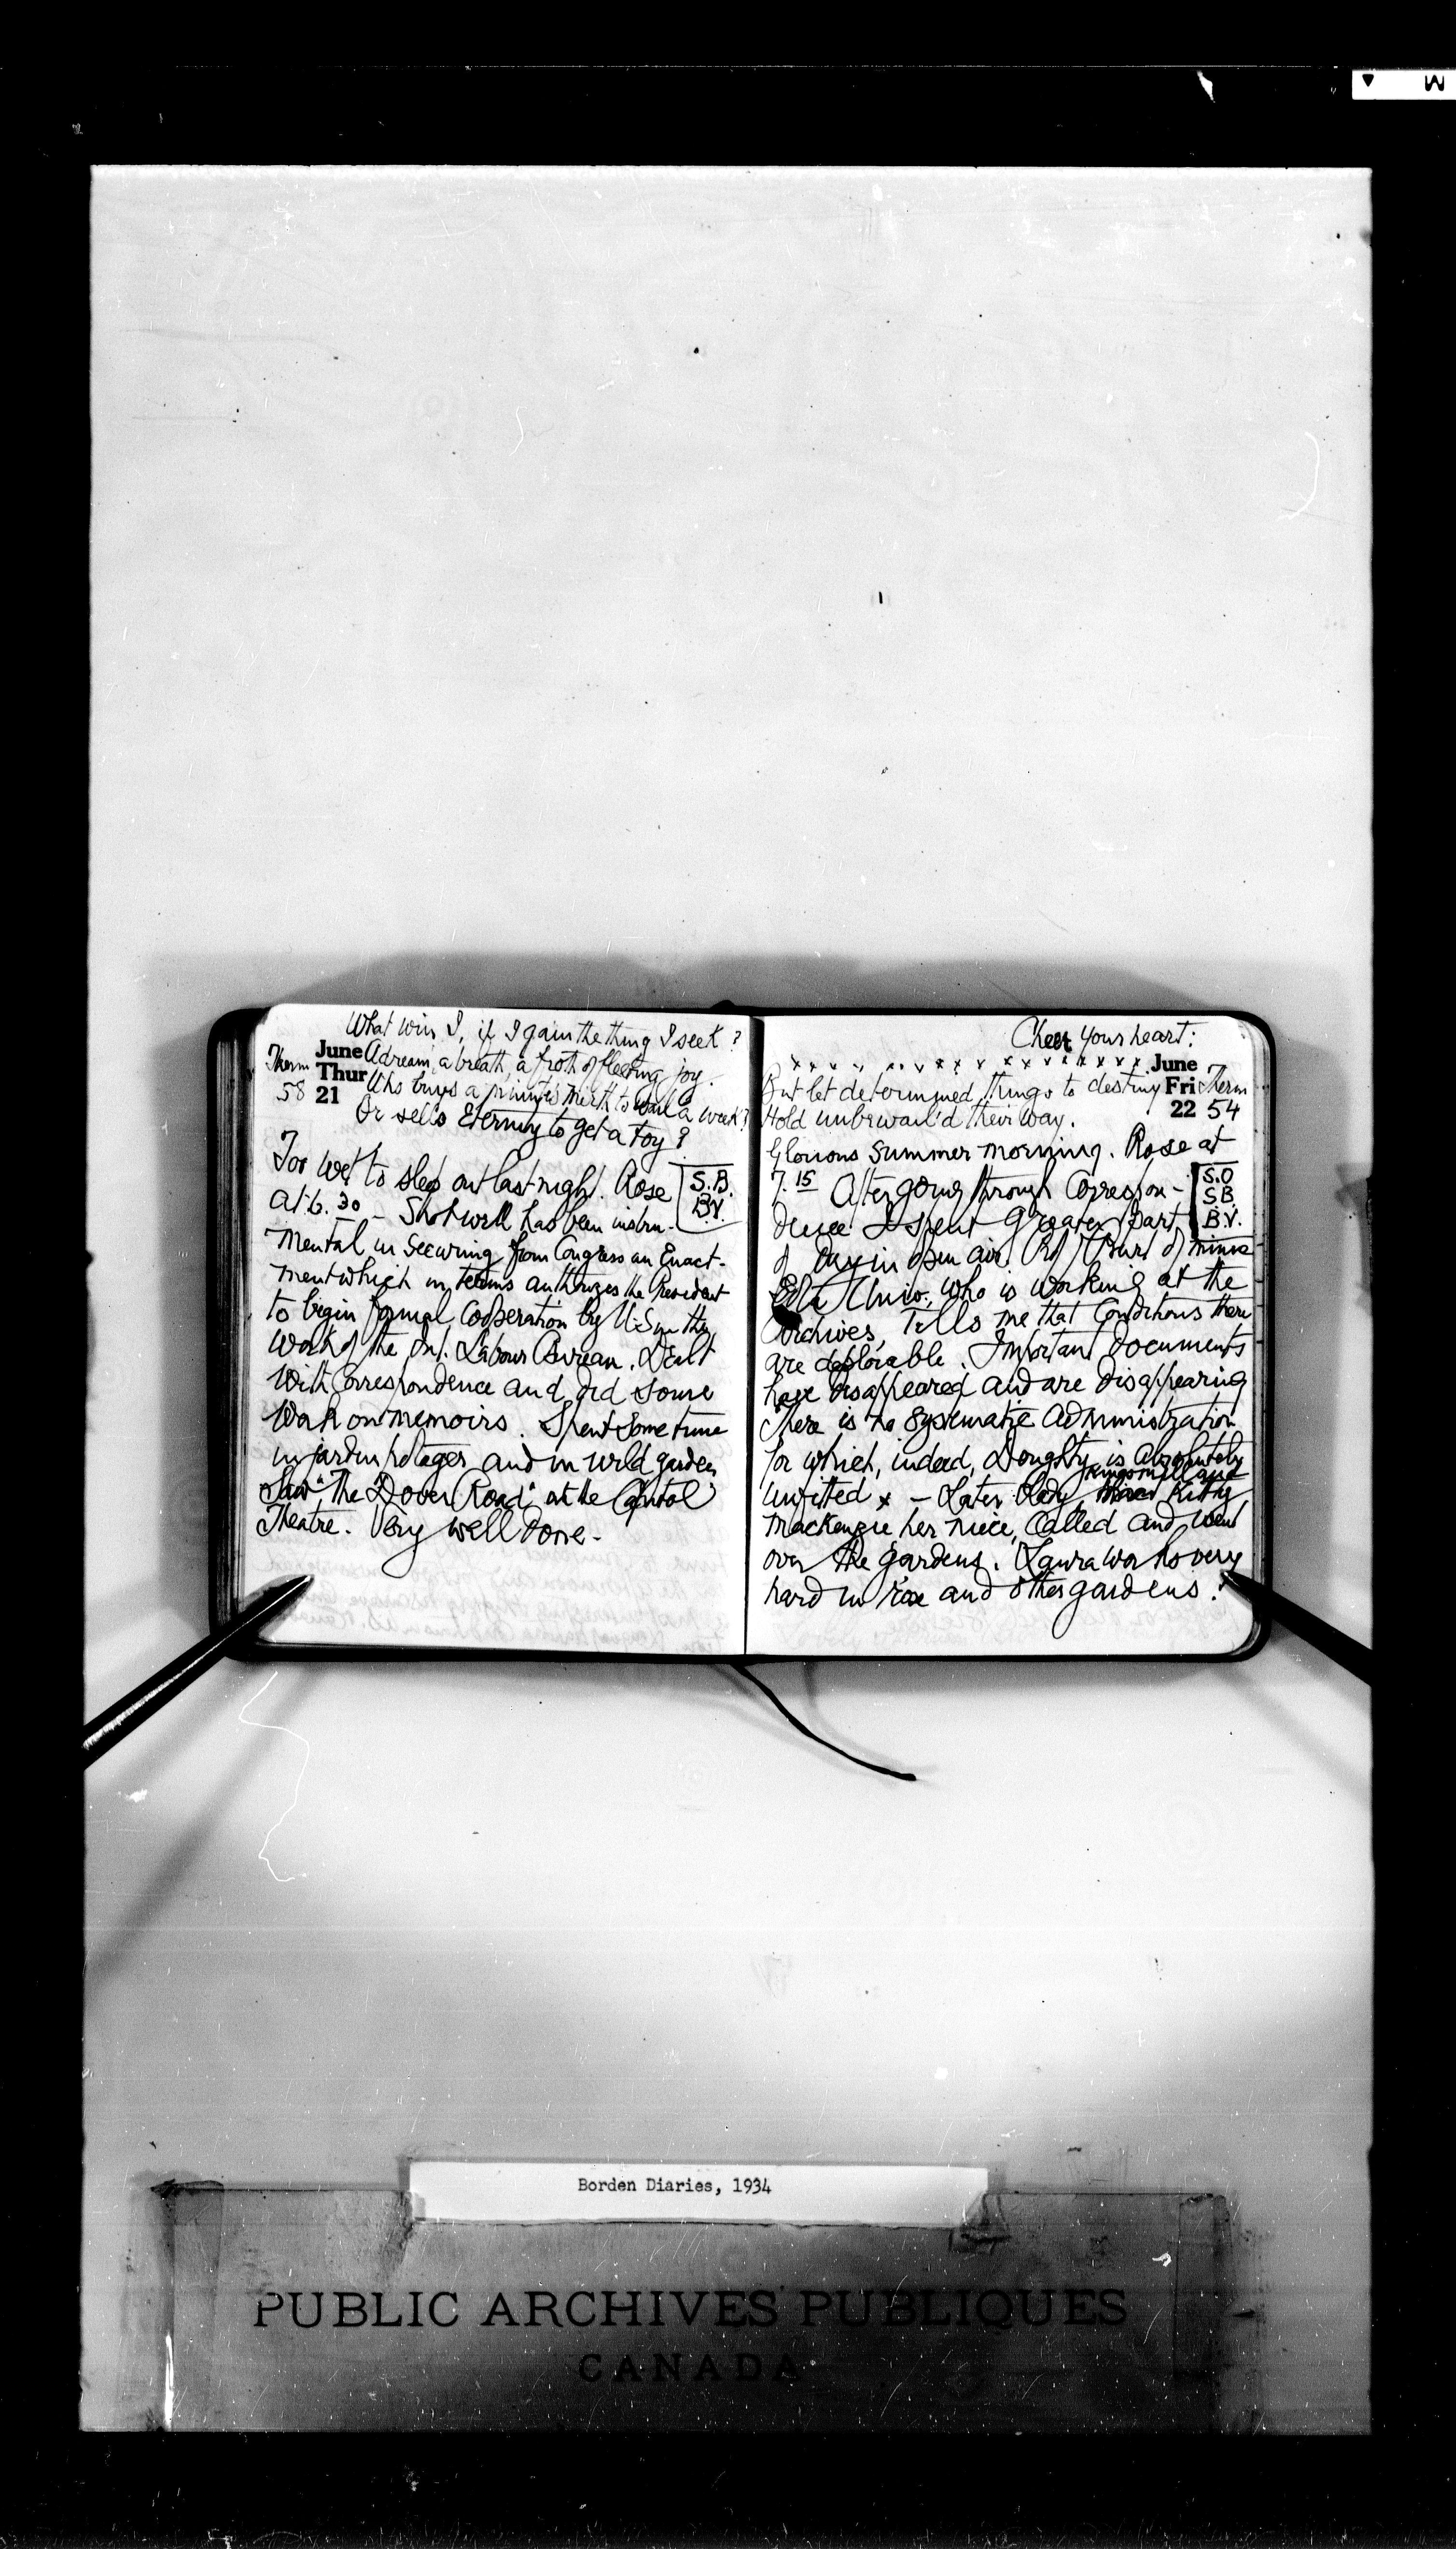 What win I, if I gain the thing I seek?
June A dream, a breath, a froth of fleeting joy.
Therm Thur Who buys a minute's mirth to wail a week?
58 21 Or sells Eternity to get a toy?
Too wet to sleep out last night. Rose S.B.
at 6.30 – Shotwell has been instru- B.V.
mental in securing from Congress an Enact-
ment which in terms authorizes the President
to begin formal cooperation by U.S. in the
work of the Int. Labour Bureau. Dealt
with correspondence and did some
work on memoirs. Spent some time
in jardin potager and in wild garden
Saw "The Dover Road" at the Capitol
Theatre. Very well done –
Cheer your heart:
x x x x x x x x x x x x x x x x x June
But let determined things to destiny Fri Therm
Hold unbewail'd their way. 22 54
Glorious summer morning. Rose at
7.15 After going through correspon- S.O
dence I spent greater part S.B.
of day in open air. Prof of B.V.
Univ., who is working at the
Archives, tells me that conditions there
are deplorable. Important documents
have disappeared and are disappearing
There is no systematic administration
for which, indeed, Doughty is absolutely
unfitted x – Later Lady Kingsmill and Kitty
Mackenzie her niece, called and went
over the gardens. Laura works very
hard in rose and other gardens.
Borden Diaries, 1934
PUBLIC ARCHIVES PUBLIQUES
CANADA
M